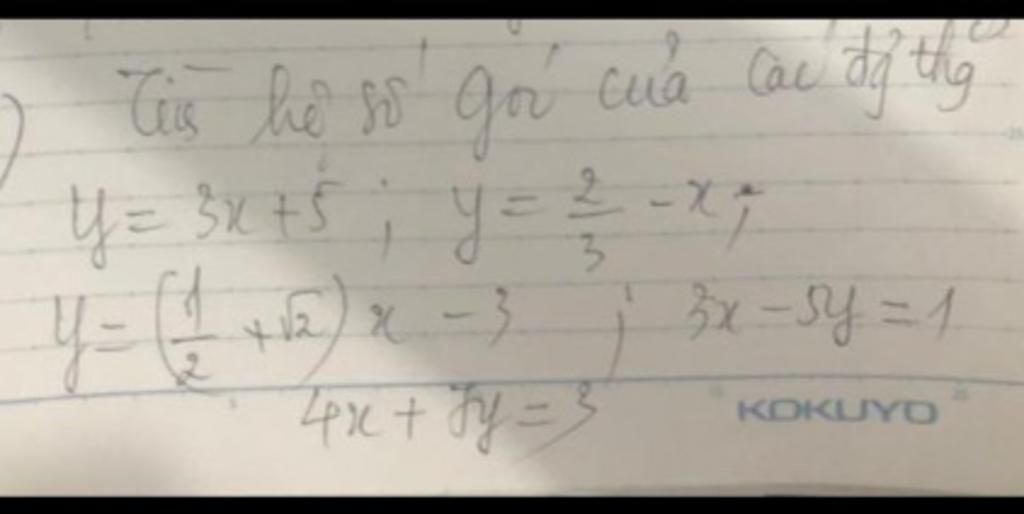 Tìm hệ số góc của các đg thg
y = 3x + 5 ; y = 2/3 - x ;
y = (1/2 + √2) x - 3 ; 3x - 5y = 1
4x + 7y = 3
KOKUYO